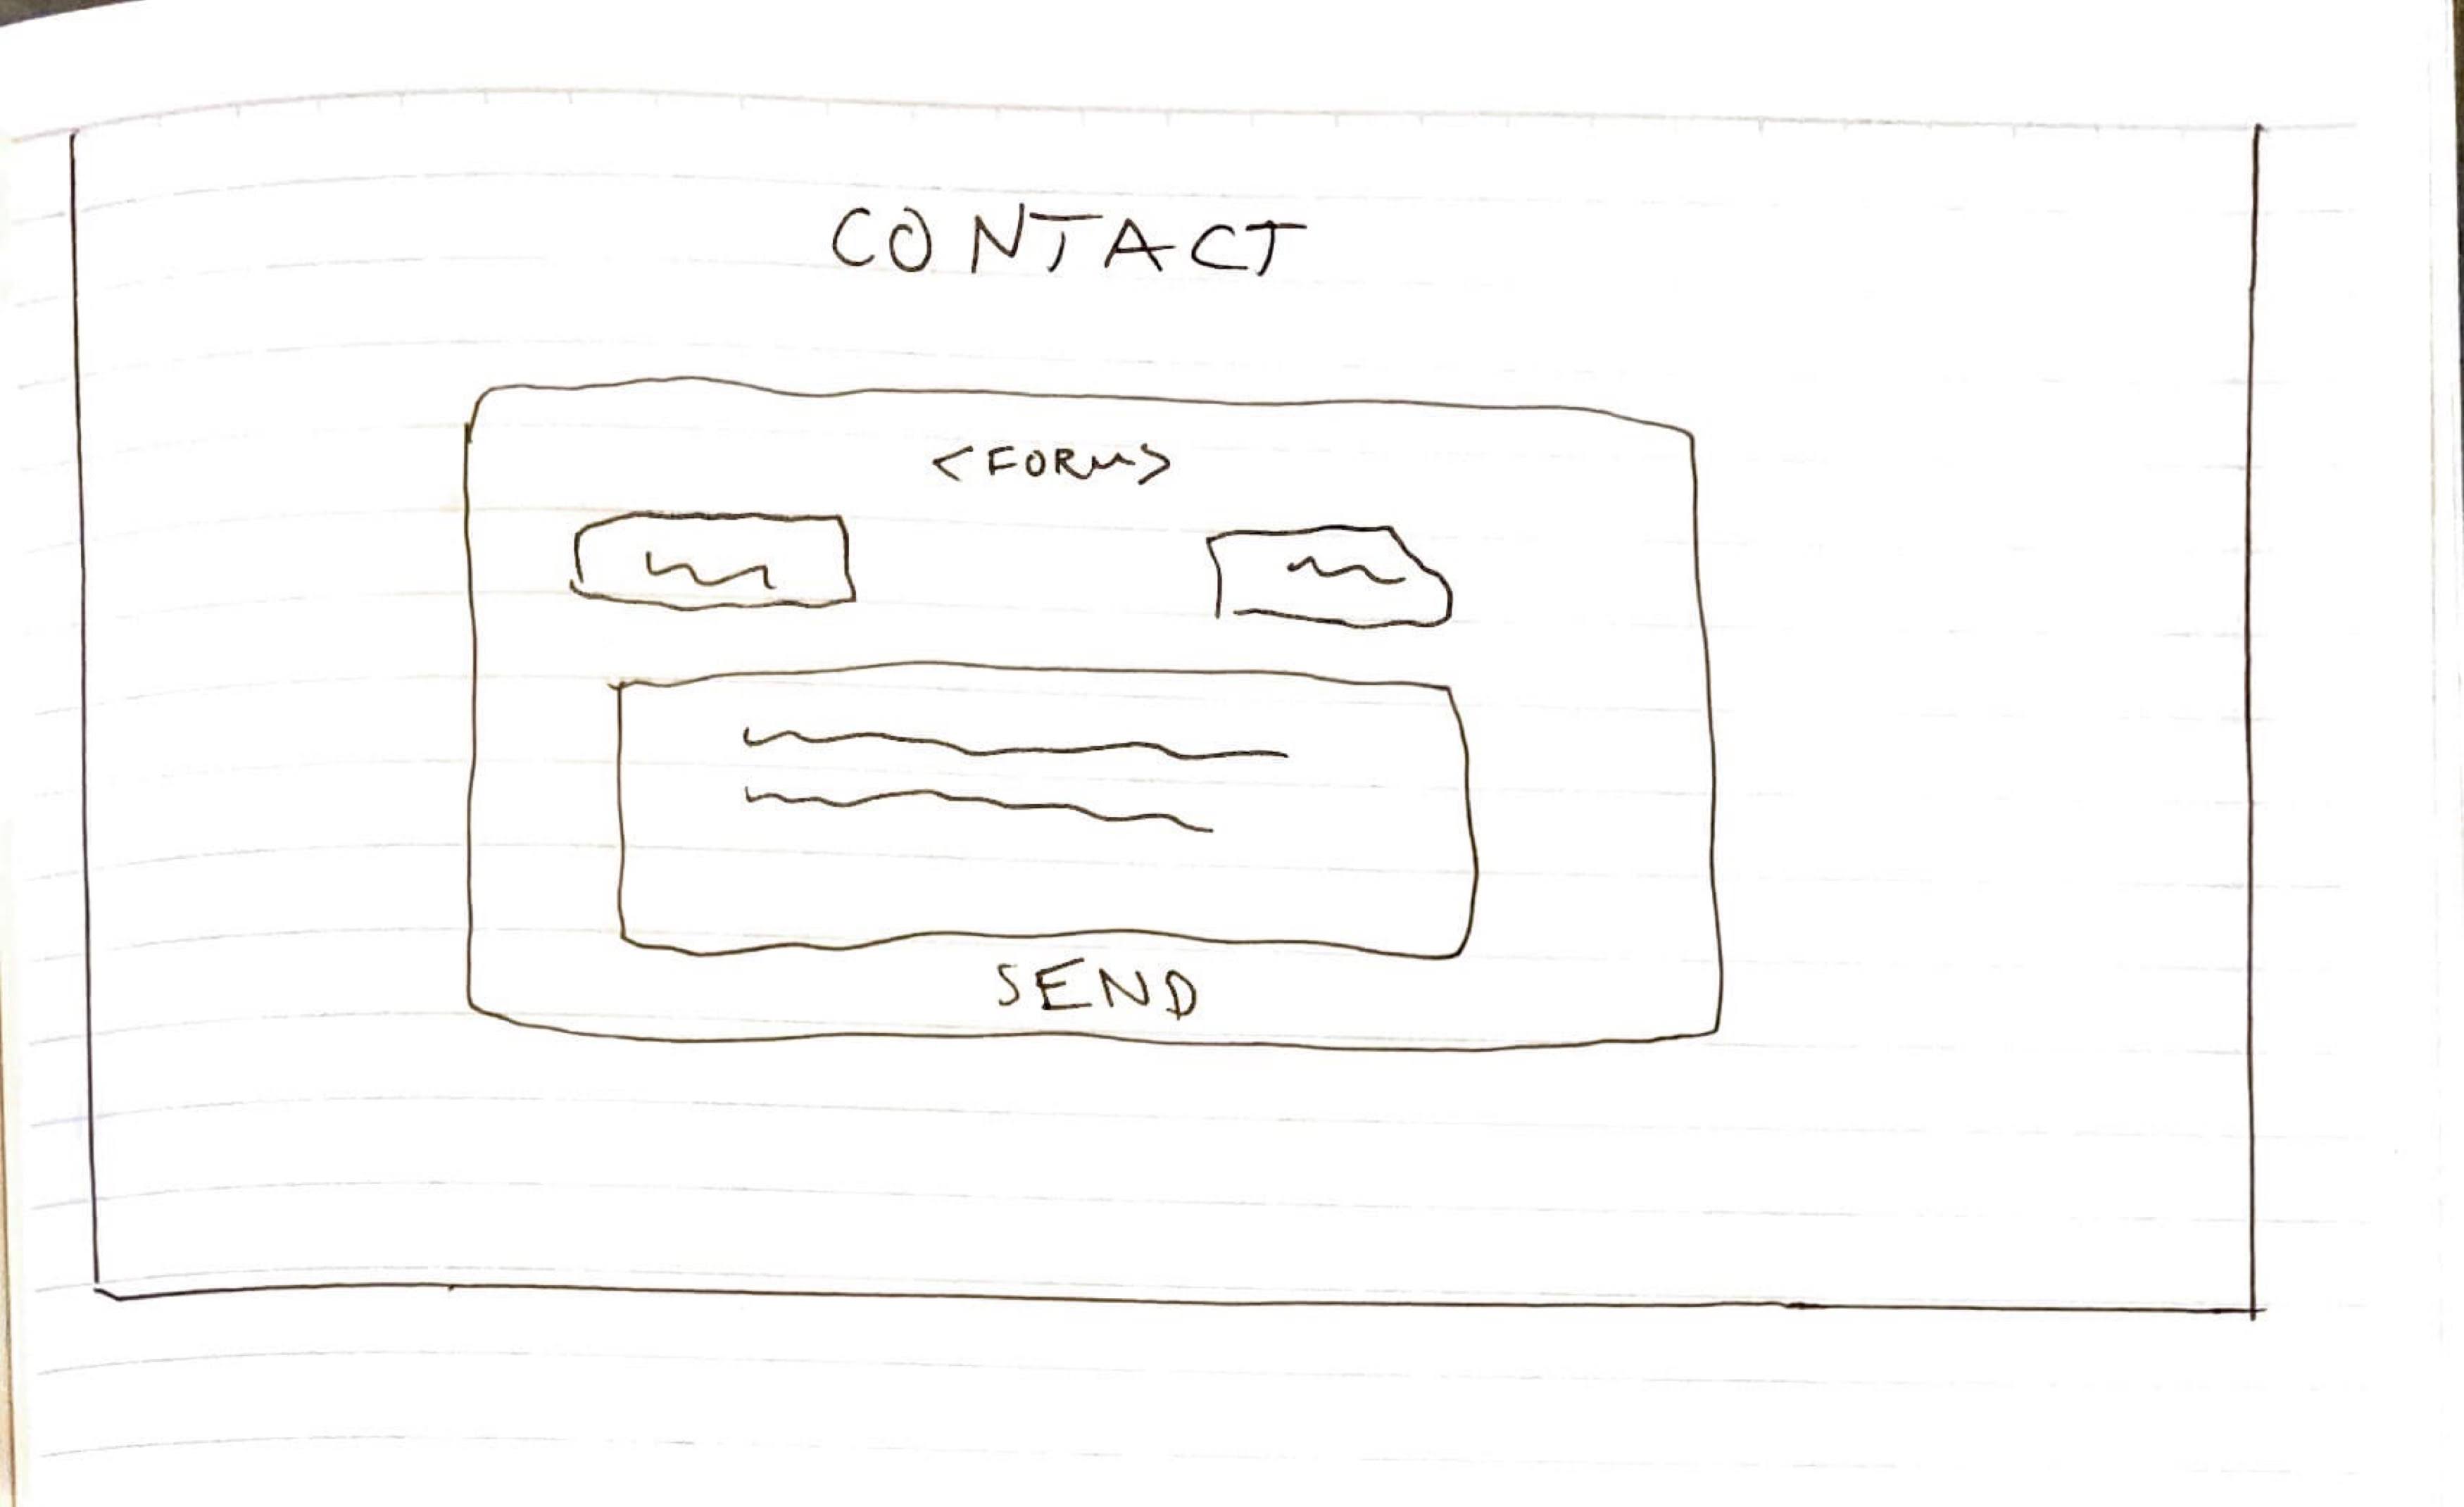 CONTACT
<FORM>
SEND